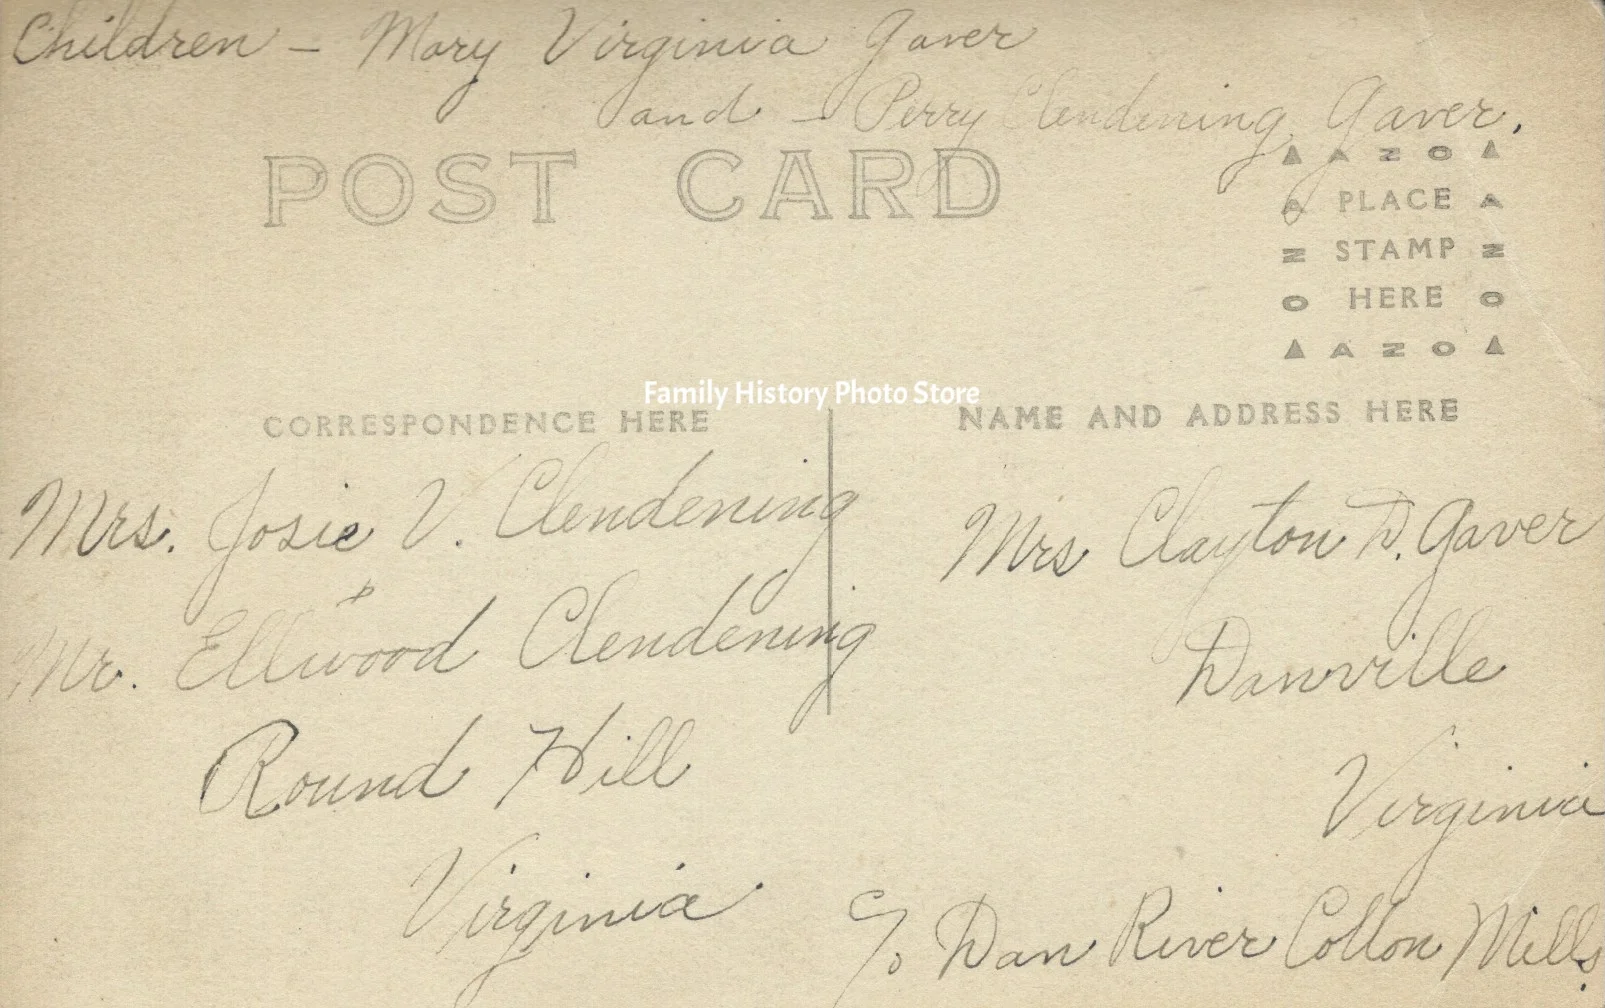 Children – Mary Virginia Gaver
and – Perry Clendening Gaver.
POST CARD
▲ A Z O ▲
A PLACE A
Z STAMP Z
O HERE O
▲ A Z O ▲
Family History Photo Store
CORRESPONDENCE HERE
NAME AND ADDRESS HERE
Mrs. Josie V. Clendening
+
Mr. Ellwood Clendening
Round Hill
Virginia
Mrs Clayton D. Gaver
Danville
Virginia
c/o Dan River Cotton Mills.